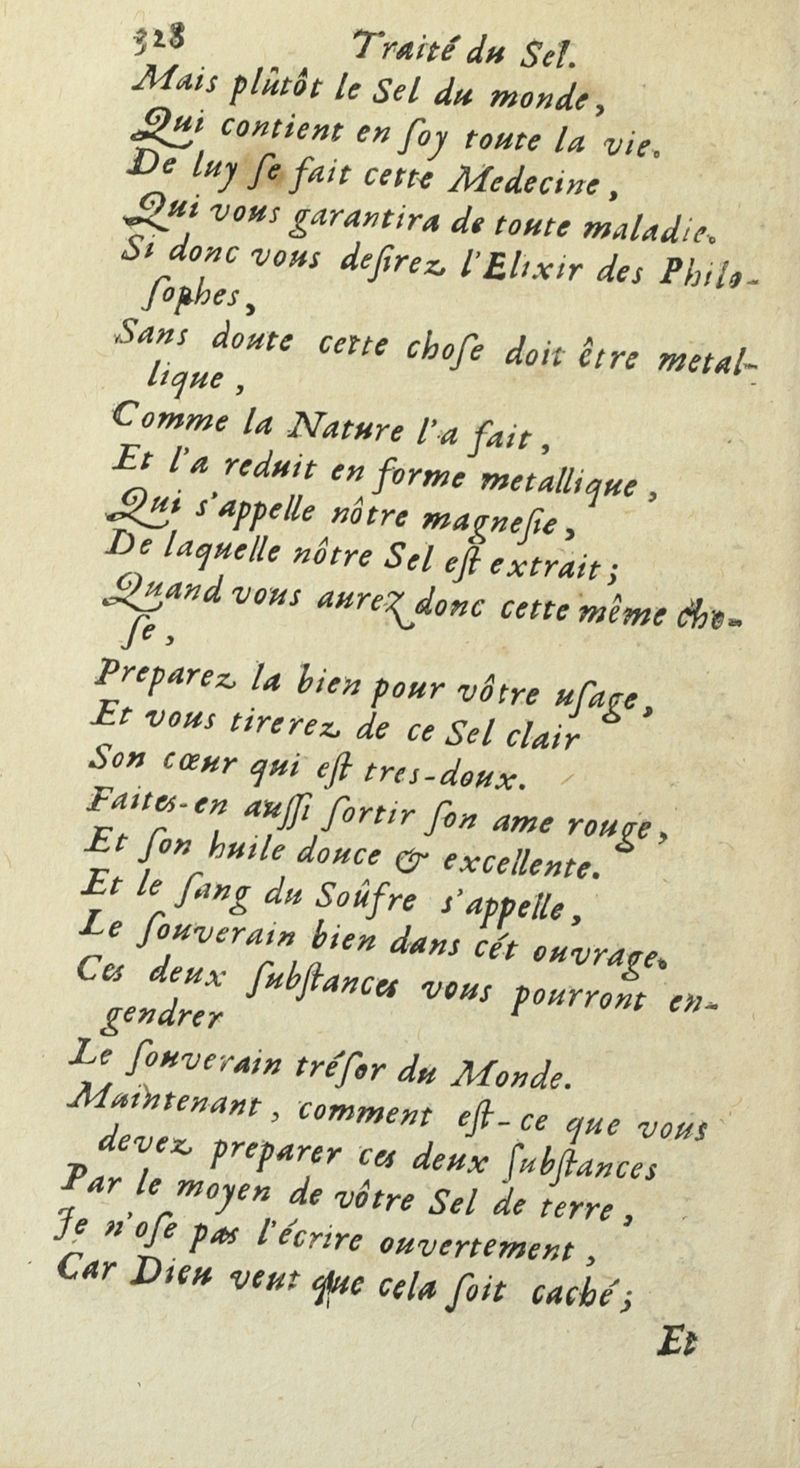 328 Traité du Sel.
Mais plûtôt le Sel du monde,
Qui contient en ſoy toute la vie.
De luy ſe fait cette Medecine,
Qui vous garantira de toute maladie.
Si donc vous deſirez l'Elixir des Philo-
ſophes,
Sans doute cette choſe doit être metal-
lique,
Comme la Nature l'a fait,
Et l'a reduit en forme metallique,
Qui s'appelle nôtre magneſie,
De laquelle nôtre Sel eſt extrait;
Quand vous aurez donc cette même cho-
ſe,
Preparez la bien pour vôtre uſage,
Et vous tirerez de ce Sel clair
Son cœur qui eſt tres-doux.
Faites-en auſſi ſortir ſon ame rouge,
Et ſon huile douce & excellente.
Et le ſang du Soûfre s'appelle,
Le ſouverain bien dans cét ouvrage.
Ces deux ſubſtances vous pourront en-
gendrer
Le ſouverain tréſor du Monde.
Maintenant, comment eſt-ce que vous
devez preparer ces deux ſubſtances
Par le moyen de vôtre Sel de terre,
Je n'oſe pas l'écrire ouvertement,
Car Dieu veut que cela ſoit caché;
Et